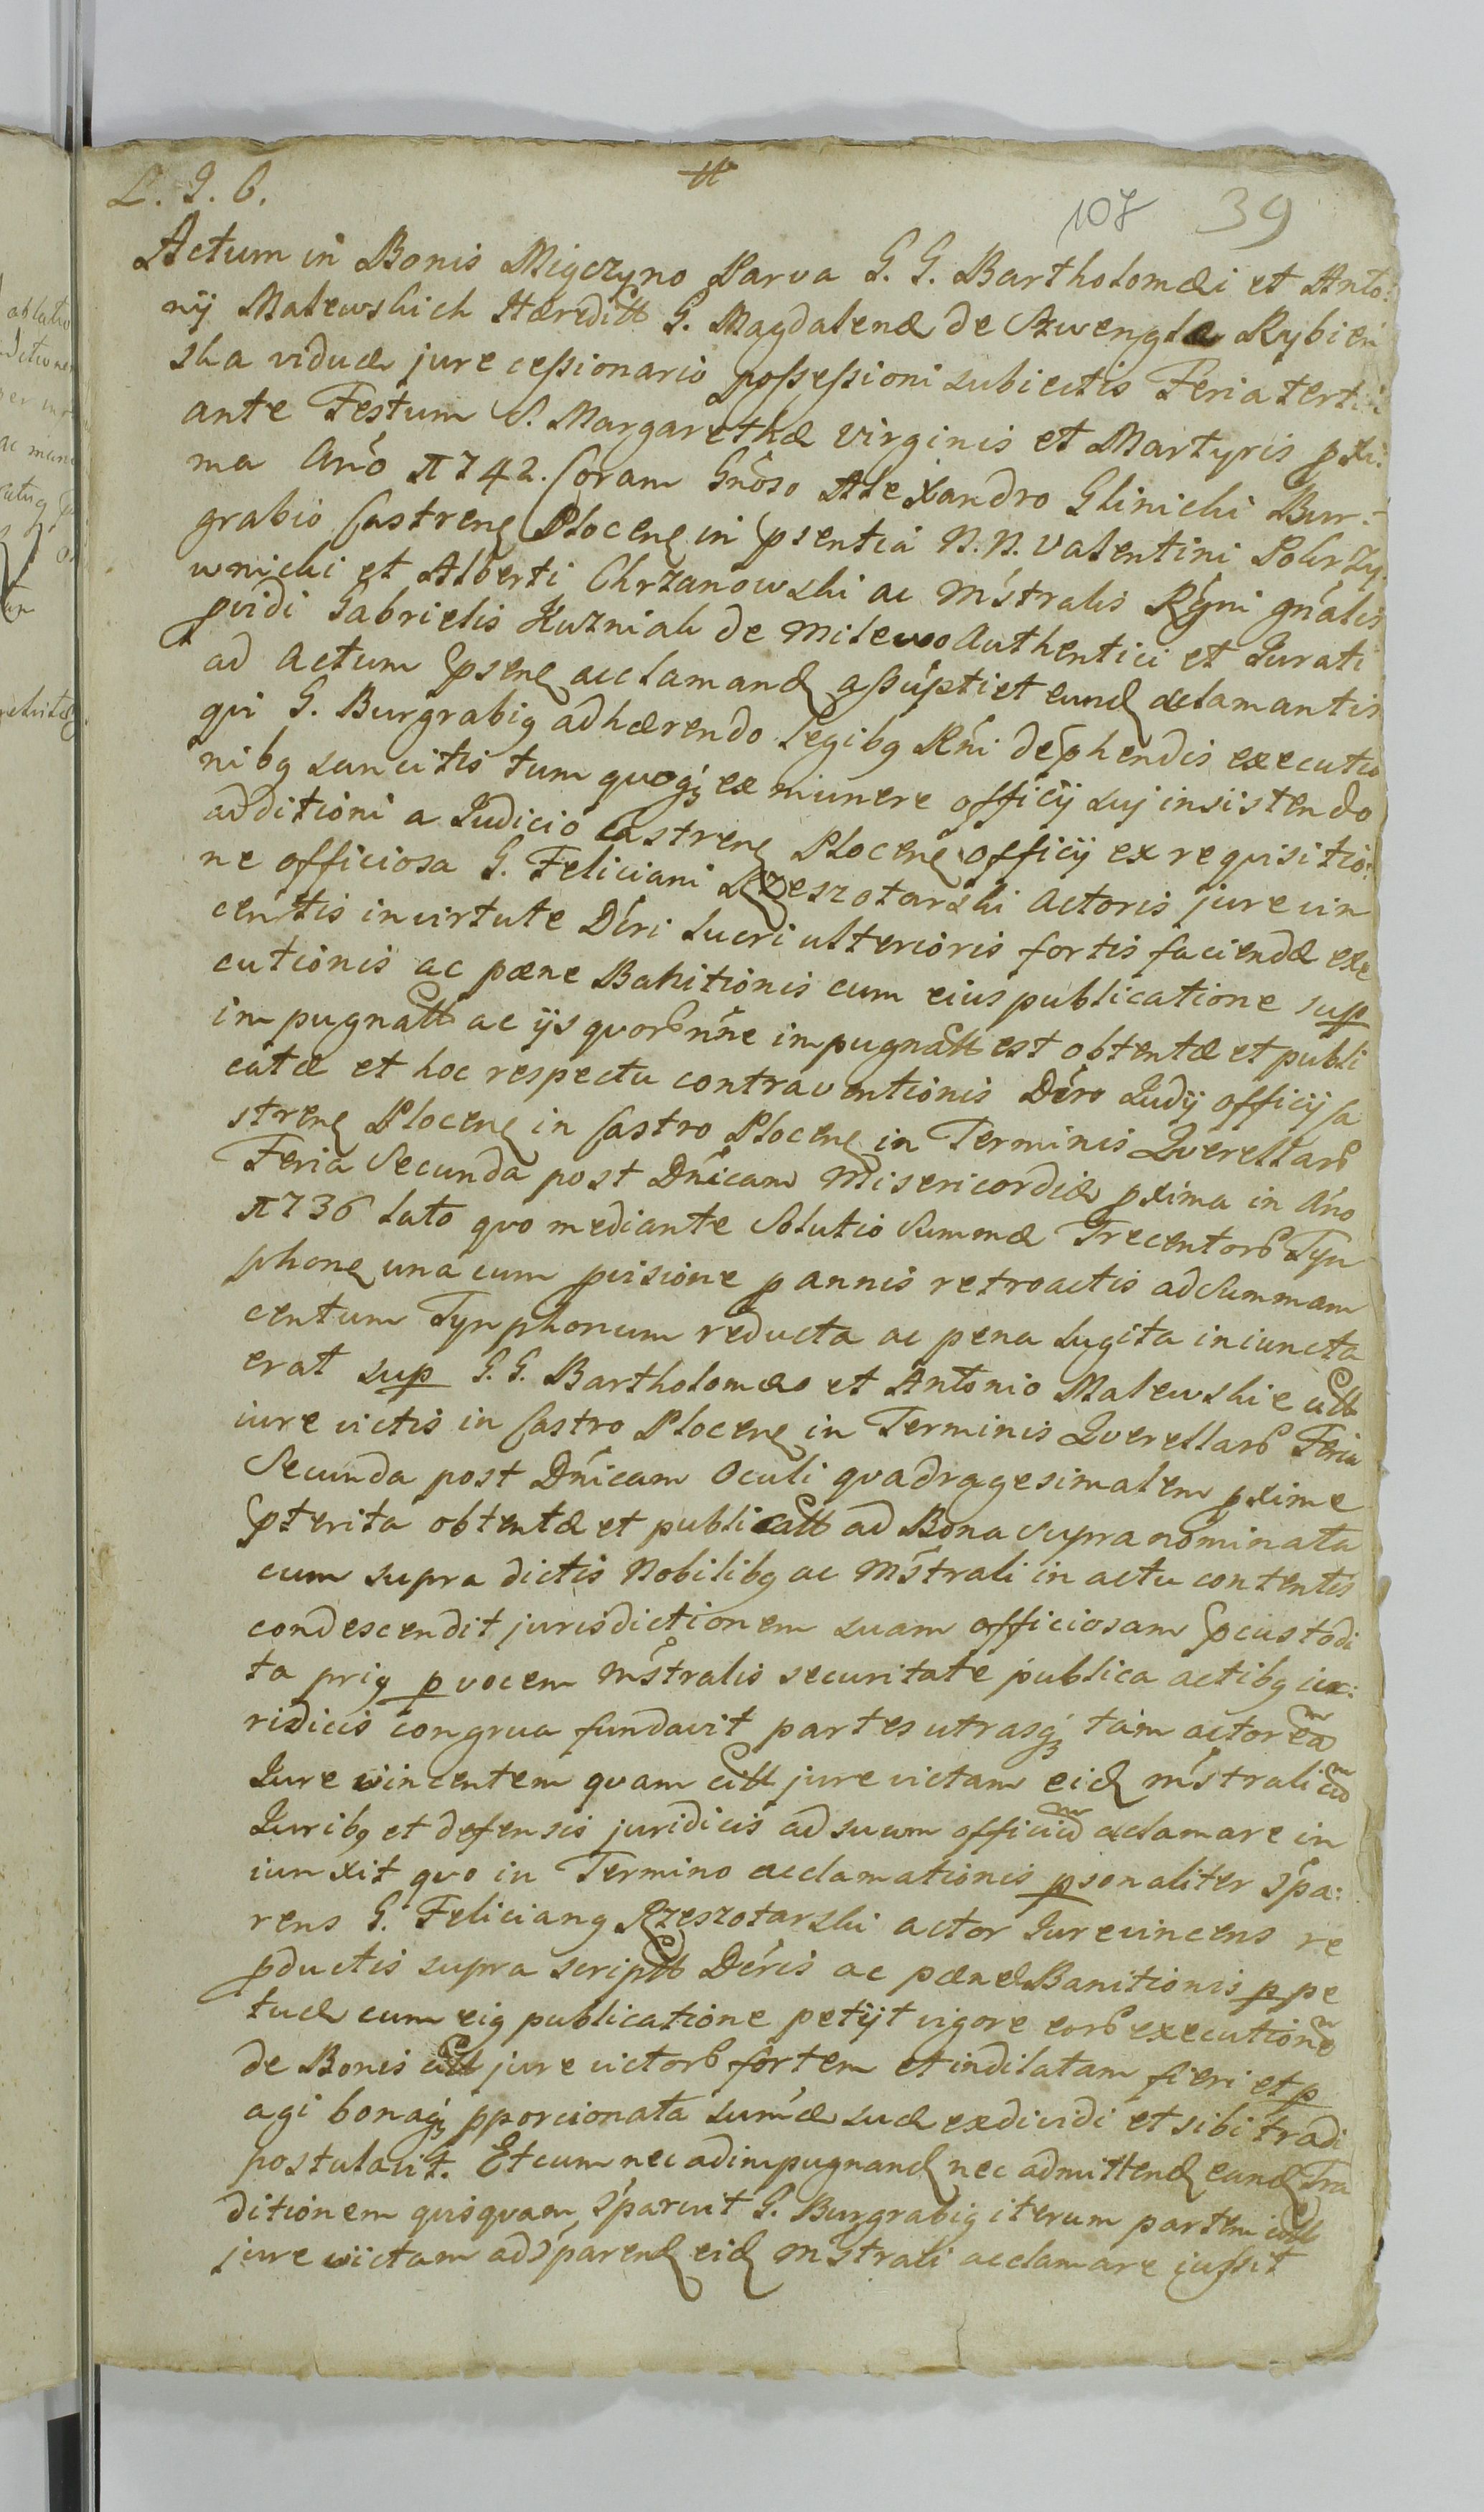 L. J. C.
107 39
Actum in Bonis Migczyno Parva G. G. Bartholomæi et Anto:
nij Malewskich Hæreditt G. Magdalenæ de Szwenglæ Rybien
ska viduæ jure cessionario possessioni subiectis Feria tertia
ante Festum S. Margarethæ Virginis et Martyris pxi:
ma Anõ 1742. Coram Gnõso Alexandro Glinicki Bur:
grabio Castren Plocen in psentia N. N. Valentini Pokrzy
wnicki et Alberti Chrzanowski ac Mstralis Regni gnalis
pvidi Gabrielis Kuzniak de Milewo Authentici et Jurati
ad Actum psen acclamand assupti et eund acclamantis
qvi G. Burgrabig adhærendo Legibg Rni dephendis executio
nibg sancitis tum qvoqz ex munere officij suj insistendo
additioni a Judicio Castren Plocen officij ex reqvisitio:
ne officiosa G. Feliciani Rzeszotarski Actoris jure vin
centis in virtute Dcri lucri ulterioris fortis faciendæ exe
cutionis ac pæne Banitionis cum eius publicatione sup
impugnatt ac ijs qvorb nne impugnatt est obtentæ et publi
catæ et hoc respectu contraventionis Dcro Judij officij Ca
stren Plocen in Castro Plocen in Terminis Qverellarb
Feria Secunda post Dnicam Misericordiæ pxima in Ano
1736 lato qvo mediante Solutio Summæ Trecentorb Tyn
phon una cum pvisione p annis retroactis ad Summam
centum Tynphonum reducta ac pena lugita iniuncta
erat sup G. G. Bartholomæo et Antonio Malewskie citt
iure victis in Castro Plocen in Terminis Qverellarb Feria
Secunda post Dnicam Oculi qvadragesimalem pxime
pterita obtentæ et publicatt ad Bona supra nominata
cum supra dictis Nobilibg ac Mstrali in actu contentis
condescendit jurisdictionem suam officiosam pcustodi
ta prig p vocem Mstralis securitate publica actibg iu:
ridicis congrua fundavit partes utrasqz tam actorea
Jure vincentem qvam citt jure victam eid mstrali cu
Juribg et defensis juridicis ad suum officiu acclamare in
iunxit qvo in Termino acclamationis psonaliter Jpa:
rens G. Feliciang Rzeszotarski actor Jurevincens re
pductis supra scriptt Dcris ac pænæ Banitionis p pe
tuæ cum eig publicatione petijt vigore eorb executione
de Bonis citt jure victorb fortem et indilatam fieri et p
agi bonaqz pporcionata sumæ suæ exdividi et sibi tradi
postulavit. Et cum nec ad impugnand nec admittend eand Tra
ditionem qvisqvam Jparuit G. Burgrabig iterum partem citt
jure victam ad Jparend eid Mstrali acclamare jussit